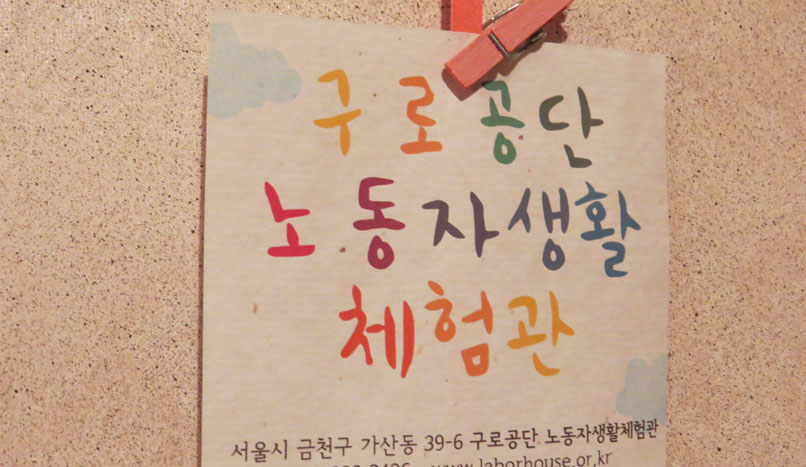 구로공단
노동자생활
체험관
서울시 금천구 가산동 39-6 구로공단 노동자생활체험관
www.laborhouse.or.kr